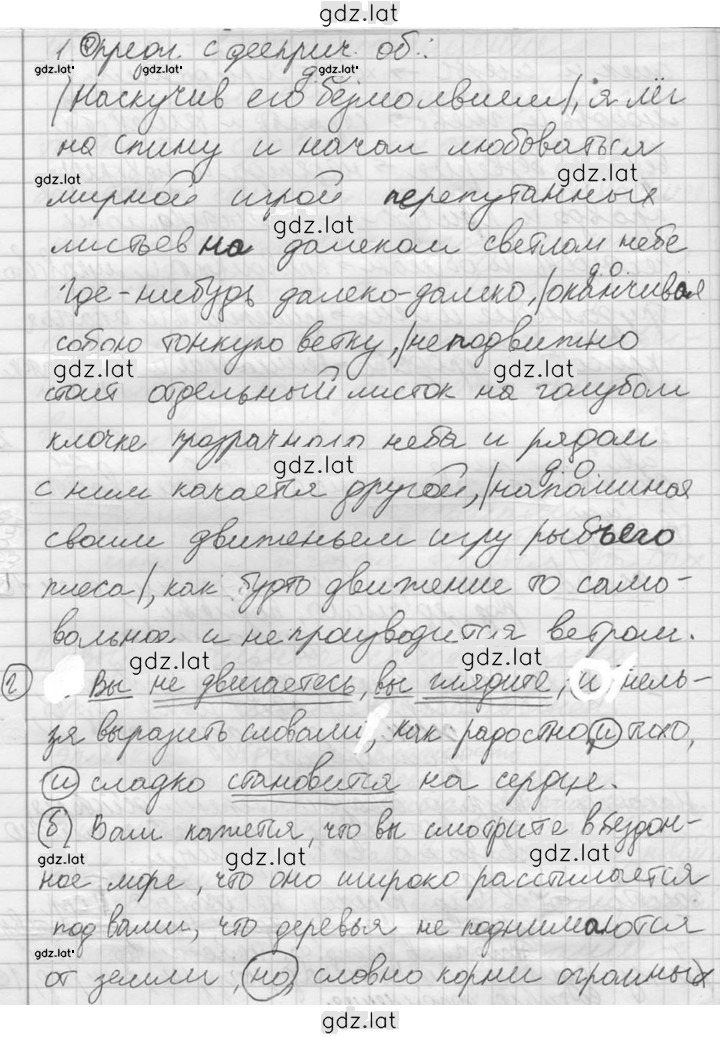 gdz.lat
1. Предл. с дееприч. об.:
gdz.lat gdz.lat д.о. gdz.lat
|Наскучив его безмолвием|, я лёг
на спину и начал любоваться
gdz.lat gdz.lat
мирной игрой перепутанных
gdz.lat
листьев на далеком светлом небе
д.о.
Где-нибудь далеко-далеко, |оканчивая
собою тонкую ветку,| неподвижно
gdz.lat gdz.lat
стоит отдельный листок на голубом
клочке прозрачного неба и рядом
gdz.lat д.о.
с ним качается другой, |напоминая
своим движеньем игру рыбьего
плеса|, как будто движение то само-
вольное и не производится ветром.
gdz.lat gdz.lat
2 Вы не двигаетесь, вы глядите, и нель-
зя выразить словами, как радостно, и тихо,
gdz.lat
и сладко становится на сердце.
б) Вам кажется, что вы смотрите в бездон-
gdz.lat gdz.lat
ное море, что оно широко расстилается
под вами, что деревья не поднимаются
gdz.lat gdz.lat gdz.lat
от земли, но, словно корни огромных
gdz.lat